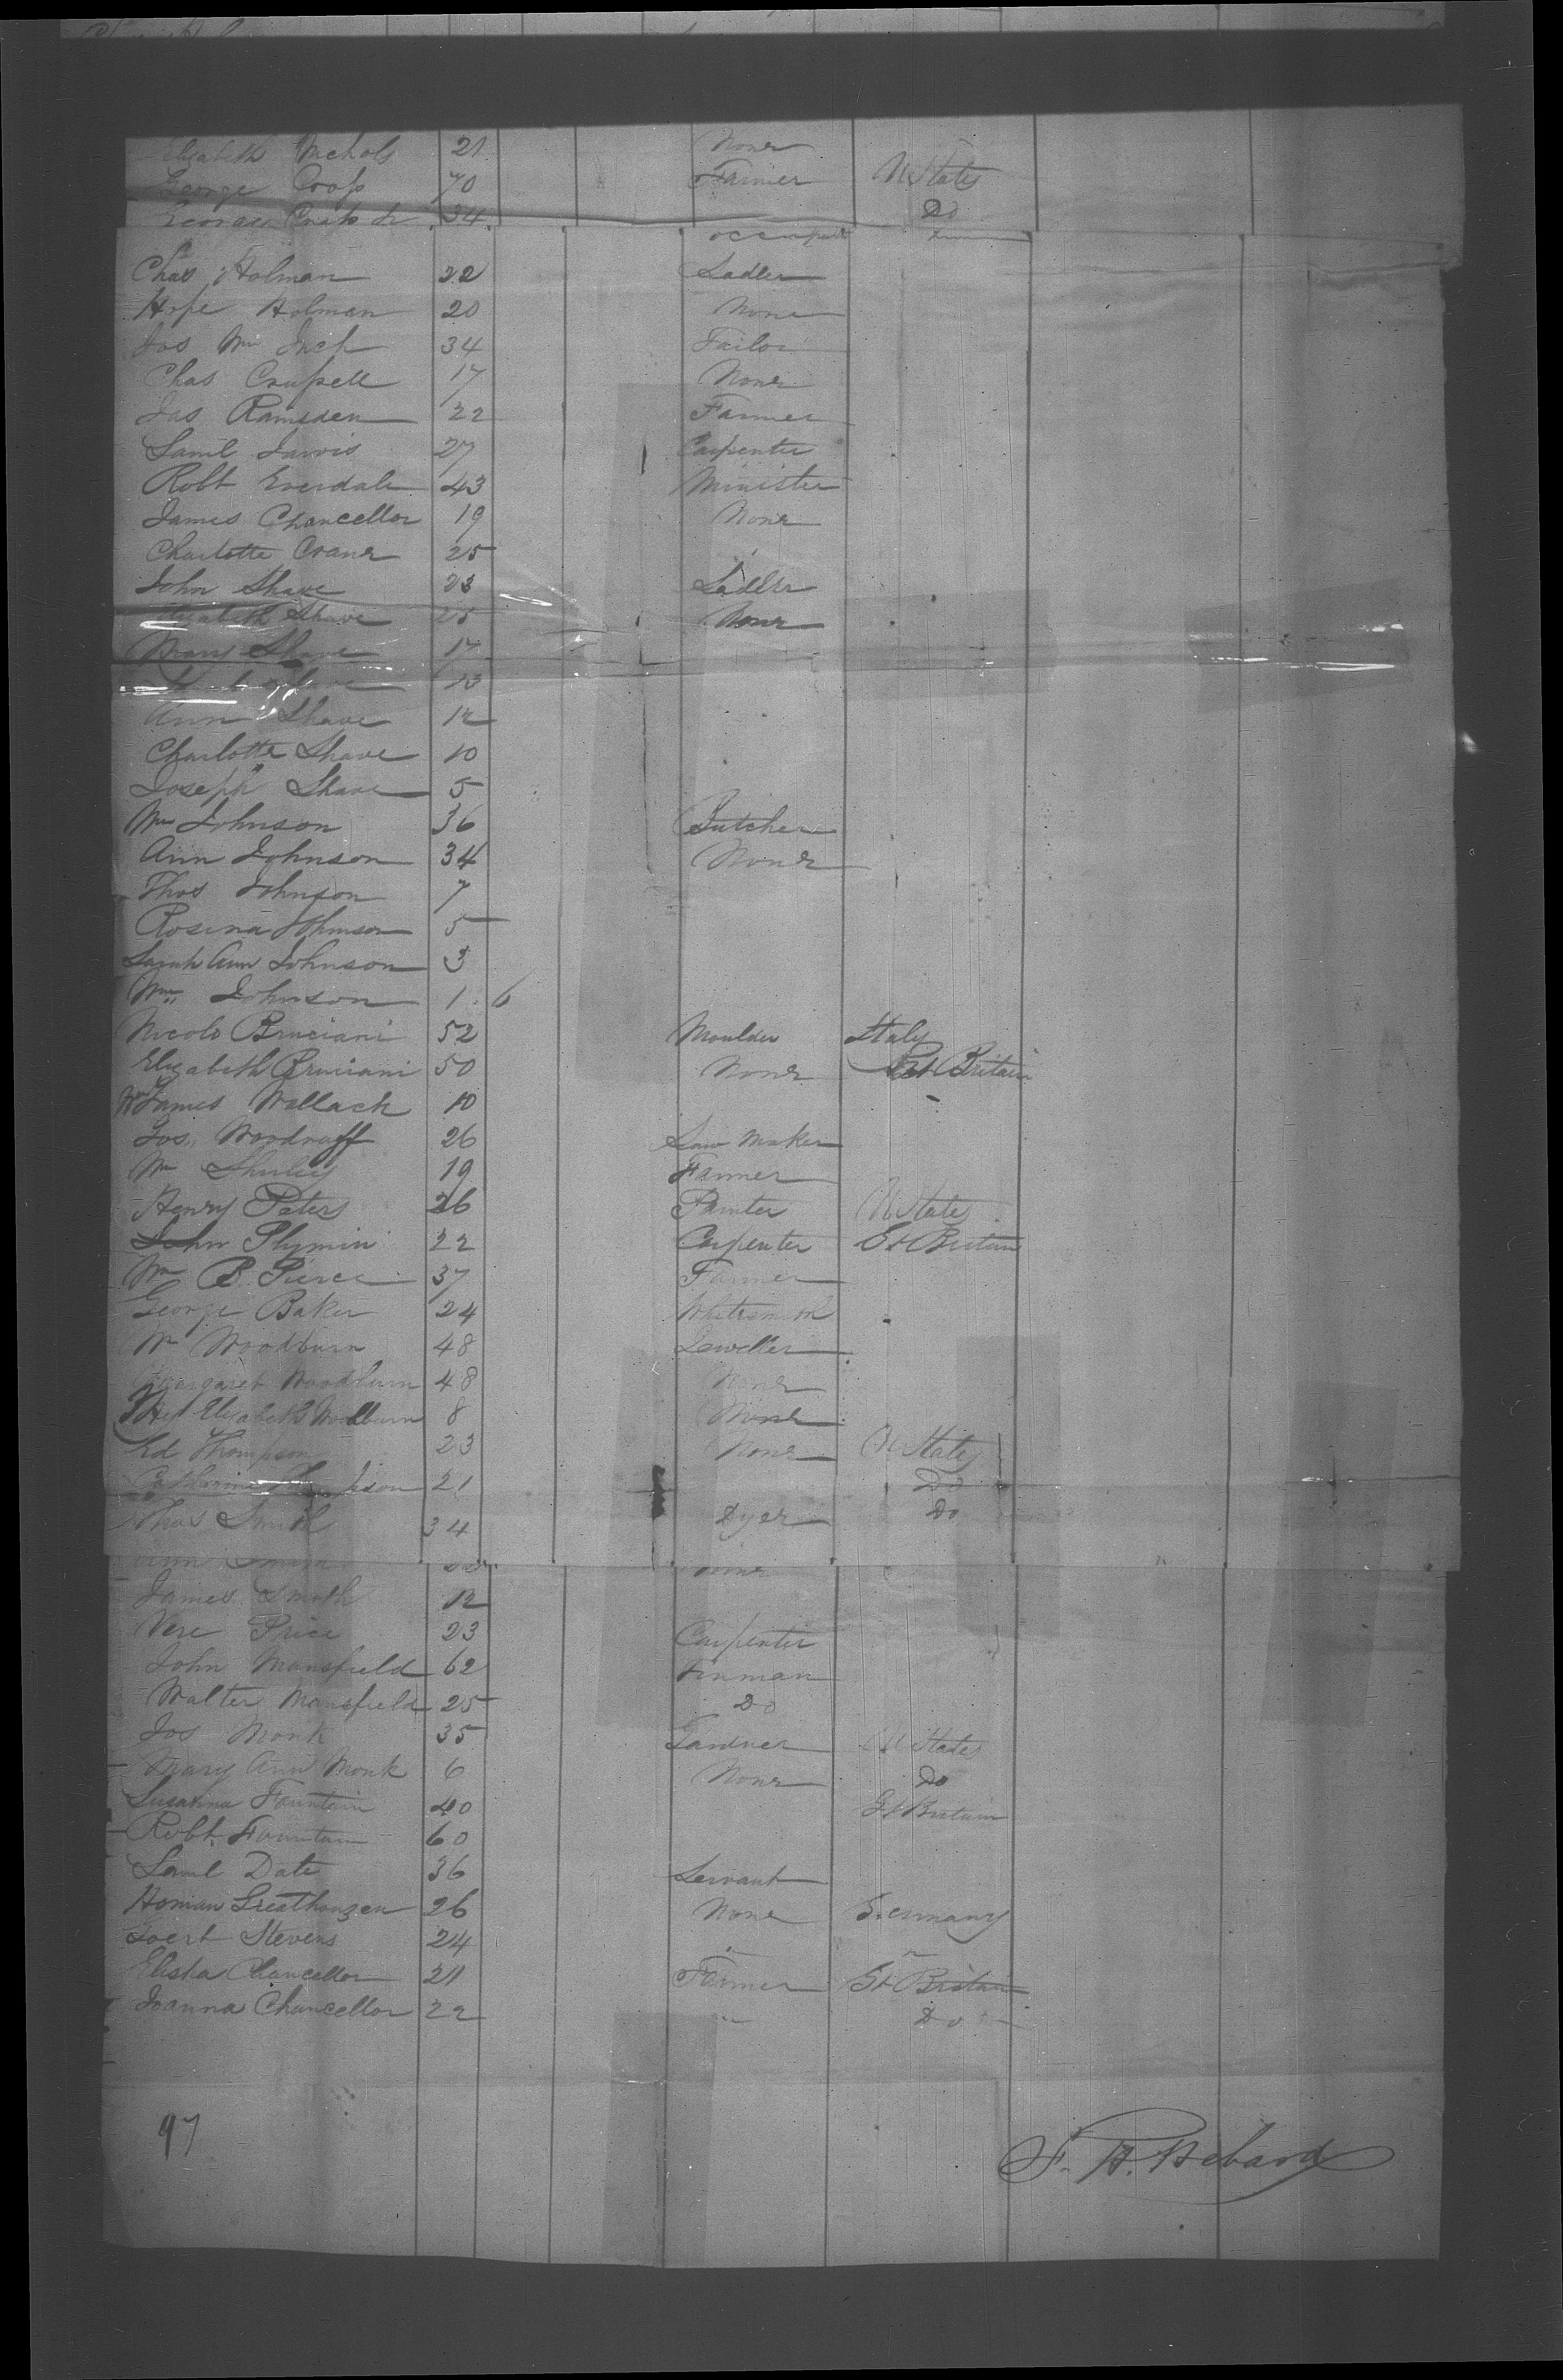 Elizabeth Nichols 21 None
George Cross 70 Farmer U States
George Cross Jr 34 Do
Chas Holman 22 Sadler
Hope Holman 20 None
Jas Wm 34 Tailor
Chas 17 None
Jas Ramsden 22 Farmer
Saml Jarvis 27 Carpenter
Robt Everdale 43 Minister
James Chancellor 19 None
Charlotte Crane 25
John Shave 23 Sadler
Elizabeth Shave 25 None
Mary Shave 17
Shave 13
Ann Shave 12
Charlotte Shave 10
Joseph Shave 5
Wm Johnson 36 Butcher
Ann Johnson 34 None
Thos Johnson 7
Rosina Johnson 5
Sarah Ann Johnson 3
Wm Johnson 1 6
Nicolo Bruciani 52 Moulder Italy
Elizabeth Bruciani 50 None Gt Britain
Wm James Wallack 10
Jos Woodruff 26 Saw Maker
Wm Shirley 19 Farmer
Henry Peters 26 Painter U States
John Plymin 22 Carpenter Gt Britain
Wm B. Pierce 37 Farmer
George Baker 24 Whitesmith
Wm Woodburn 48 Jeweller
Margaret Woodburn 48 None
Elizabeth Woodburn 8 None
Ed Thompson 23 None U States
Catharine Thompson 21 Do
Thos Smith 34 Dyer Do
Ann Smith None
James Smith 12
Vere Price 23 Carpenter
John Mansfield 62 Tinman
Walter Mansfield 25 Do
Jos Monk 35 Gardner U States
Mary Ann Monk 6 None Do
Susanna Fountain 40 Gt Britain
Robt Fountain 60
Saml Date 36 Servant
Homan Greathouzen 26 None Germany
Goert Stevens 24 " "
Elisha Chancellor 21 Farmer Gt Britain
Joanna Chancellor 22 " Do
97
F. H. Hebard